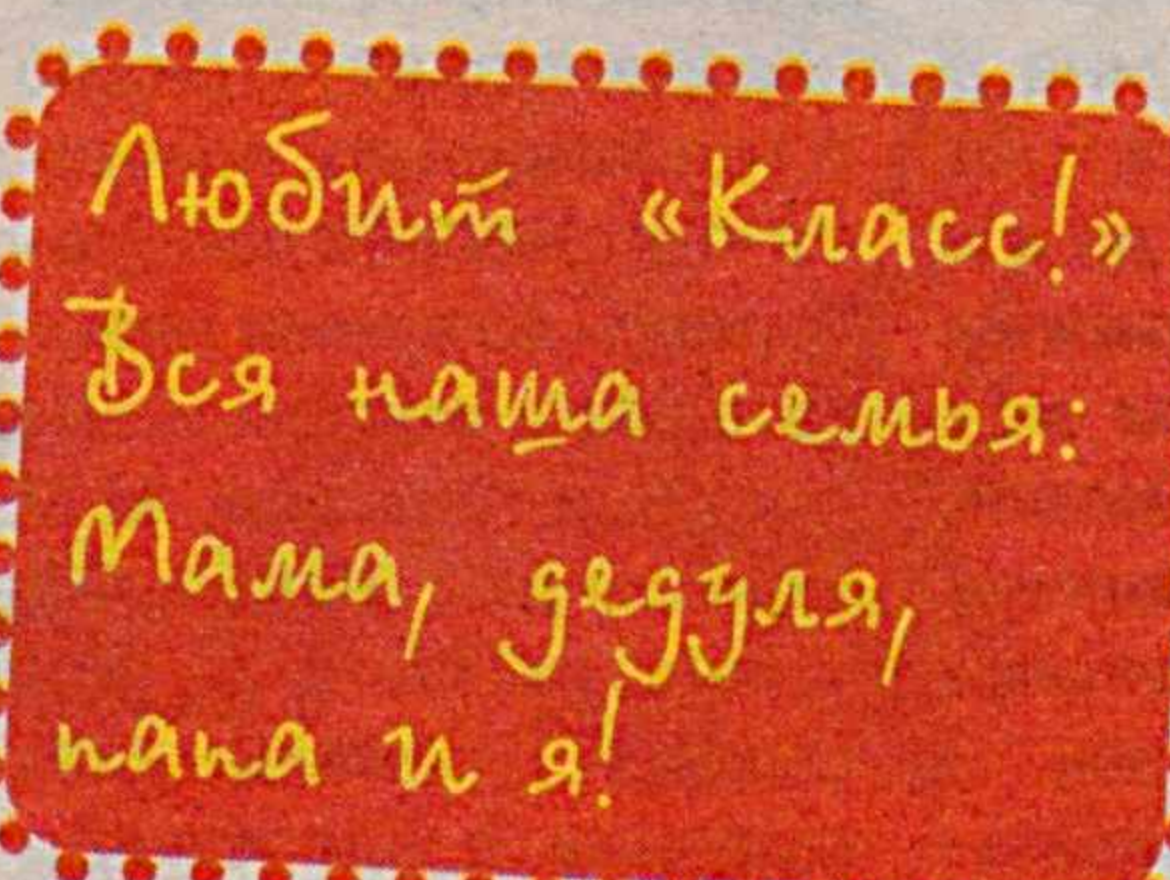 Любит «Класс!»
Вся наша семья:
Мама, дедуля,
папа и я!